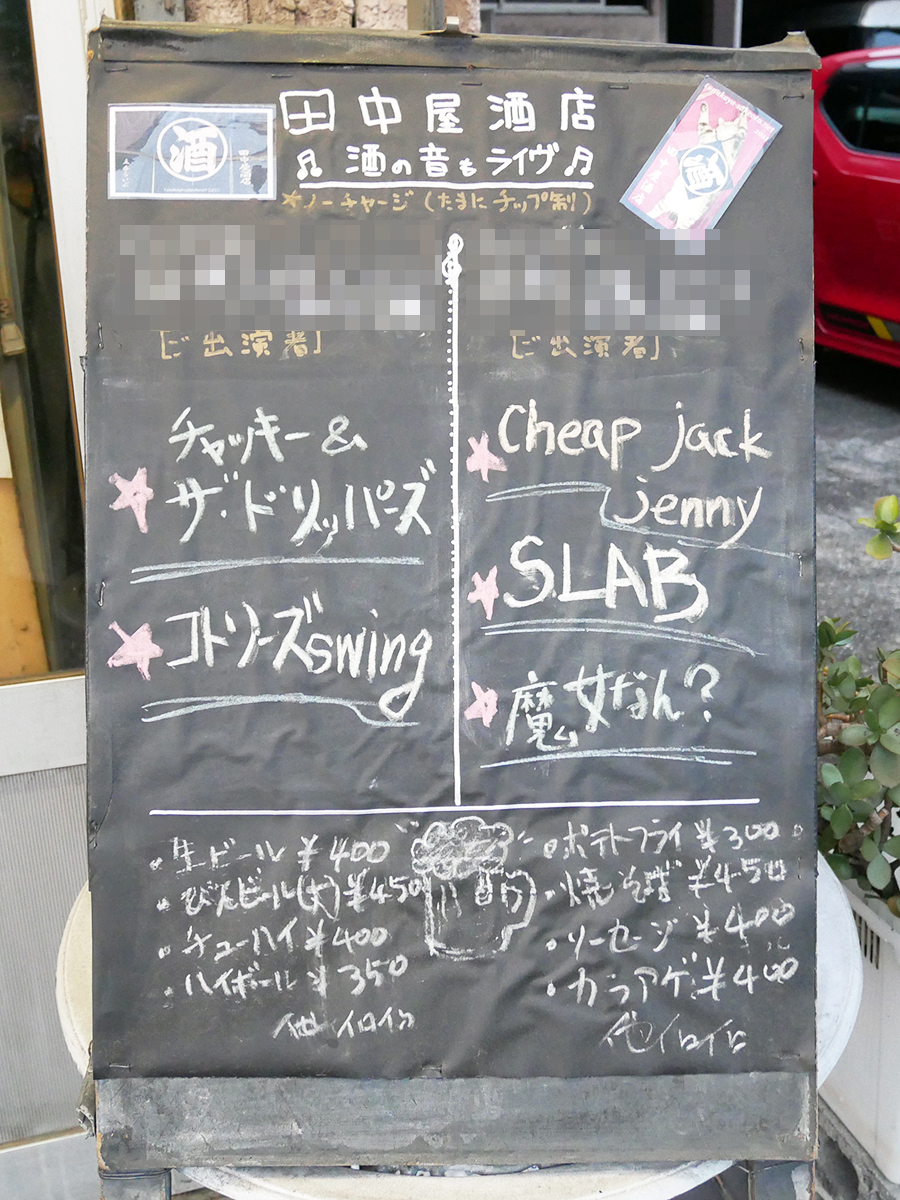 田中屋酒店
酒の音もライヴ
★ノーチャージ(たまにチップ制)
酒
[ご出演者]
チャッキー&
ザ・ドリッパーズ
コトリーズswing
[ご出演者]
Cheap jack
jenny
SLAB
魔女なん?
・生ビール ¥400
・びんビール(大)¥450
・チューハイ ¥400
・ハイボール ¥350
他イロイロ
・ポテトフライ ¥300
・焼そば ¥450
・ソーセージ ¥400
・カラアゲ ¥400
他イロイロ